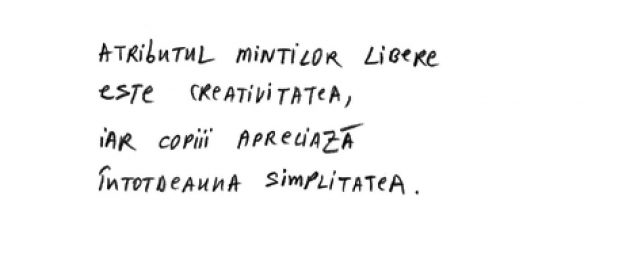 ATRIBUTUL MINTILOR LIBERE
ESTE CREATIVITATEA,
IAR COPIII APRECIAZĂ
ÎNTOTDEAUNA SIMPLITATEA.